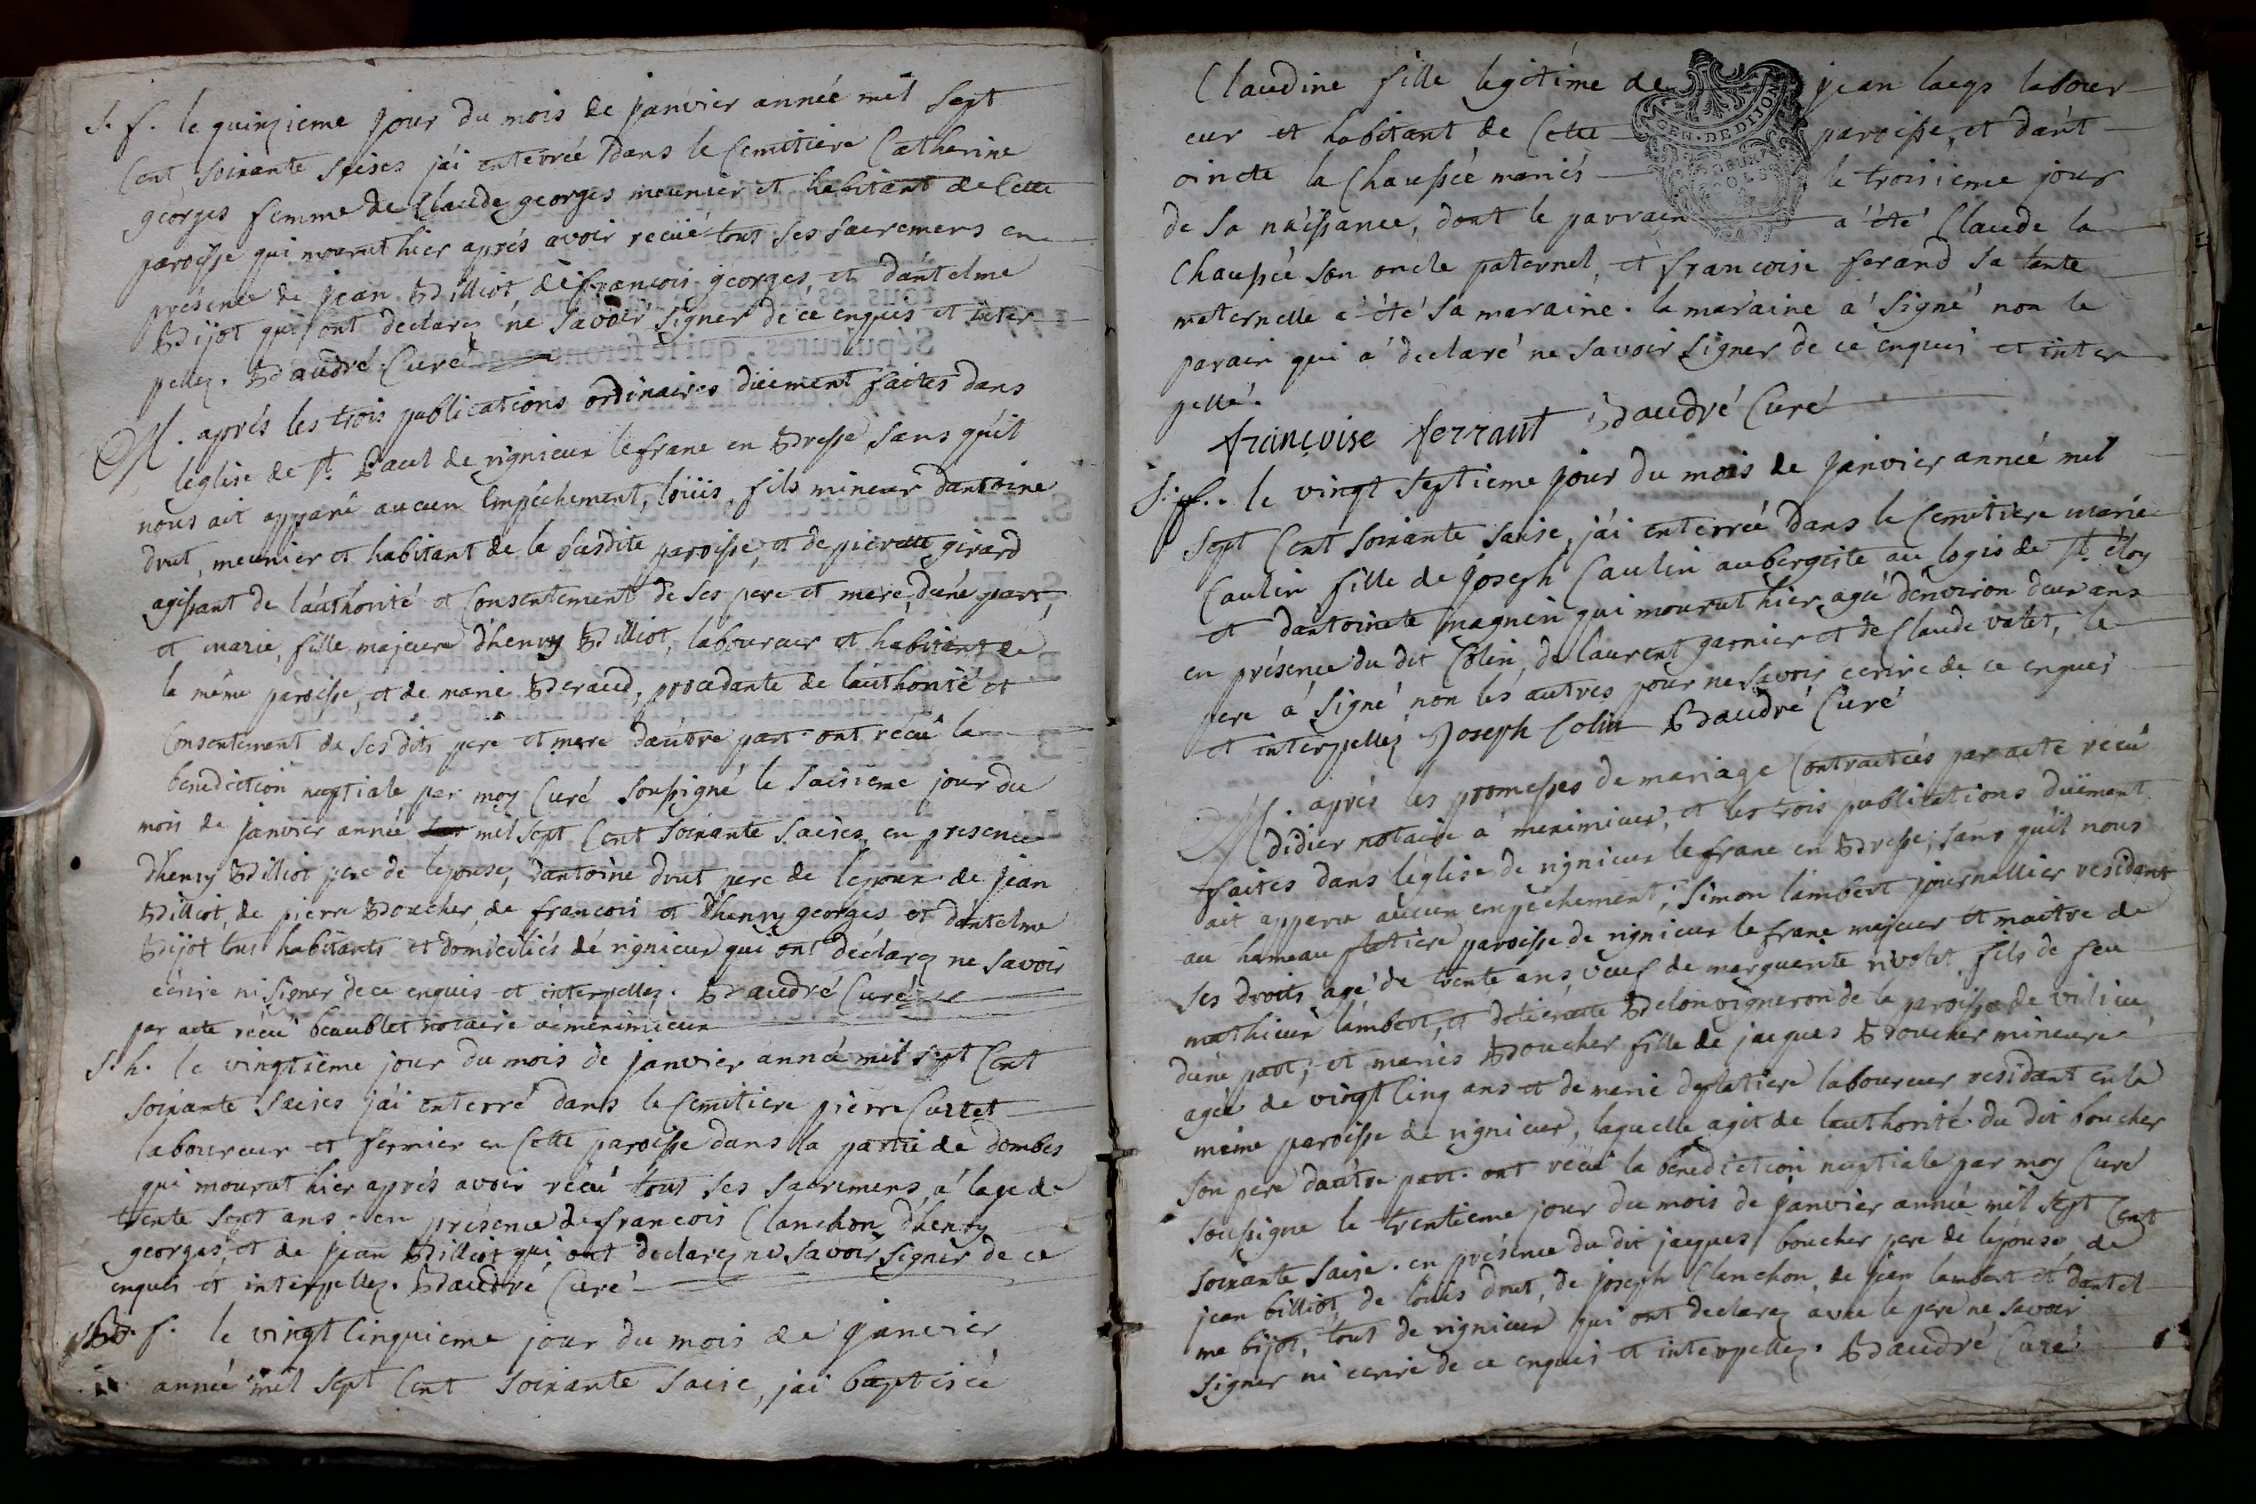 S. f. le quinzieme jour du mois de janvier année mil sept
Cent soixante seises j'ai enterrée dans le Cemitiere Catherine
georges femme de Claude georges meunier et habitant de Cette
paroisse qui mourut hier aprés avoir recuë tous ses sacremens en
présence de jean Billiot, de francois georges, et d'antelme
Bijot qui ont declarez ne savoir signer de ce enquis et inter
pellez. Baudré Curé
M. aprés les trois publications ordinaires düement faites dans
l'eglise de St. Paul de rignieux le franc en Bresse sans qu'il
nous ait apparu aucun Empêchement, loüis, fils mineur dantoine
drut, meunier et habitant de la susdite paroisse, et de pierrette girard
agissant de láuthorité et Consentement de ses pere et mere, d'uné part,
et marie, fille majeure d'henry Billiot, laboureur et habitant de
la même paroisse, et de marie Beraud, procedante de láuthorité et
Consentement de ses dits pere et mere dáutre part ont recû la
benediction nuptiale par moy Curé soussigné le saisieme jour du
mois de janvier année mil sept Cent soixante saises en presence
d'henry Billiot pere de l'epouse, d'antoine drut pere de l'epoux de jean
Billiot, de pierre Boucher de francois et d'henry georges et d'antelme
Bijot tous habitants et domiciliés de rignieux qui ont déclarez ne savoir
écrire ni signer de ce enquis et interpellez. Baudré Curé
par acte récu beaublet notaire a meximieux
S. h. le vingtieme jour du mois de janvier année mil sept Cent
soixante saeises j'ai enterré dans le Cemitiere pierre Curtet
laboureur et fermier en Cette paroisse dans la partie de dombes
qui mourut hier aprés avoir récû tous ses sacremens á l'age de
trente sept ans en présence de francois Clanchon d'henry
georges, et de jean Billiot qui ont declarez ne savoir signer de ce
enquis et interpellez. Baudré Curé
B. f. le vingt Cinquieme jour du mois de janvier
année mil sept Cent soixante saeise, j'ai baptisée
Claudine fille legitime de jean laeqs labour
eur et habitant de Cette paroisse, et d'ant
oinete la Chaussée mariés le troisieme jour
de sa náissance, dont le parrain a été Claude la
Chaussée son oncle paternel, et francoise ferand sa tante
maternelle a été sa maraine. la maráine a signé non le
parain qui a declaré ne savoir signer de ce enquis et inter
pellé.
GEN. DE DIJON
DEUX
SOLS
françoise ferraut Baudré Curé
S. f. le vingt septieme jour du mois de janvier année mil
sept Cent soixante saise, j'ai enterrée dans le Cemitiere marie
Caulin fille de joseph Caulin aubergiste au logis de St. éloy
et d'antoinete magnin qui mourut hier agée d'environ deux ans
en présence du dit Colin, de laurent garnier et de Claude valet, le
pere a signé non les autres pour ne savoir ecrire de ce enquis
et interpellez Joseph Colin Baudré Curé
M. aprés les promesses de mariage Contractées par acte récû
didier notaire a meximieux, et les trois publications düement
faites dans l'église de rignieux le franc en Bresse, sans qu'il nous
ait apparu aucun empéchement, Simon lambert journallier residant
au hameau flatiere paroisse de rignieux le franc majeur et maitre de
ses droits agé de trente ans, veuf de marguerite rivolet fils de feu
mathieu lambert, et detienette Belon vigneron de la paroisse de vilieu
d'uné part; et mariés Boucher fille de jacques Boucher mineure
agée de vingt Cinq ans et de marie deplatiere laboureur residant en la
méme paroisse de rignieux, laquelle agit de láuthorité du dit boucher
son pere dáutre part ont récû la benediction nuptiale par moy Curé
soussigne le trentieme jour du mois de janvier année mil sept Cent
soixante saise. en présence du dit jacques boucher pere de l'épouse, de
jean billiot, de loüis drut, de joseph Clanchon, de jean lambert et d'antel
me bijot, tous de rignieux qui ont declarez avec le pere ne savoir
signer ni ecrire de ce enquis et interpellez. Baudré Curé